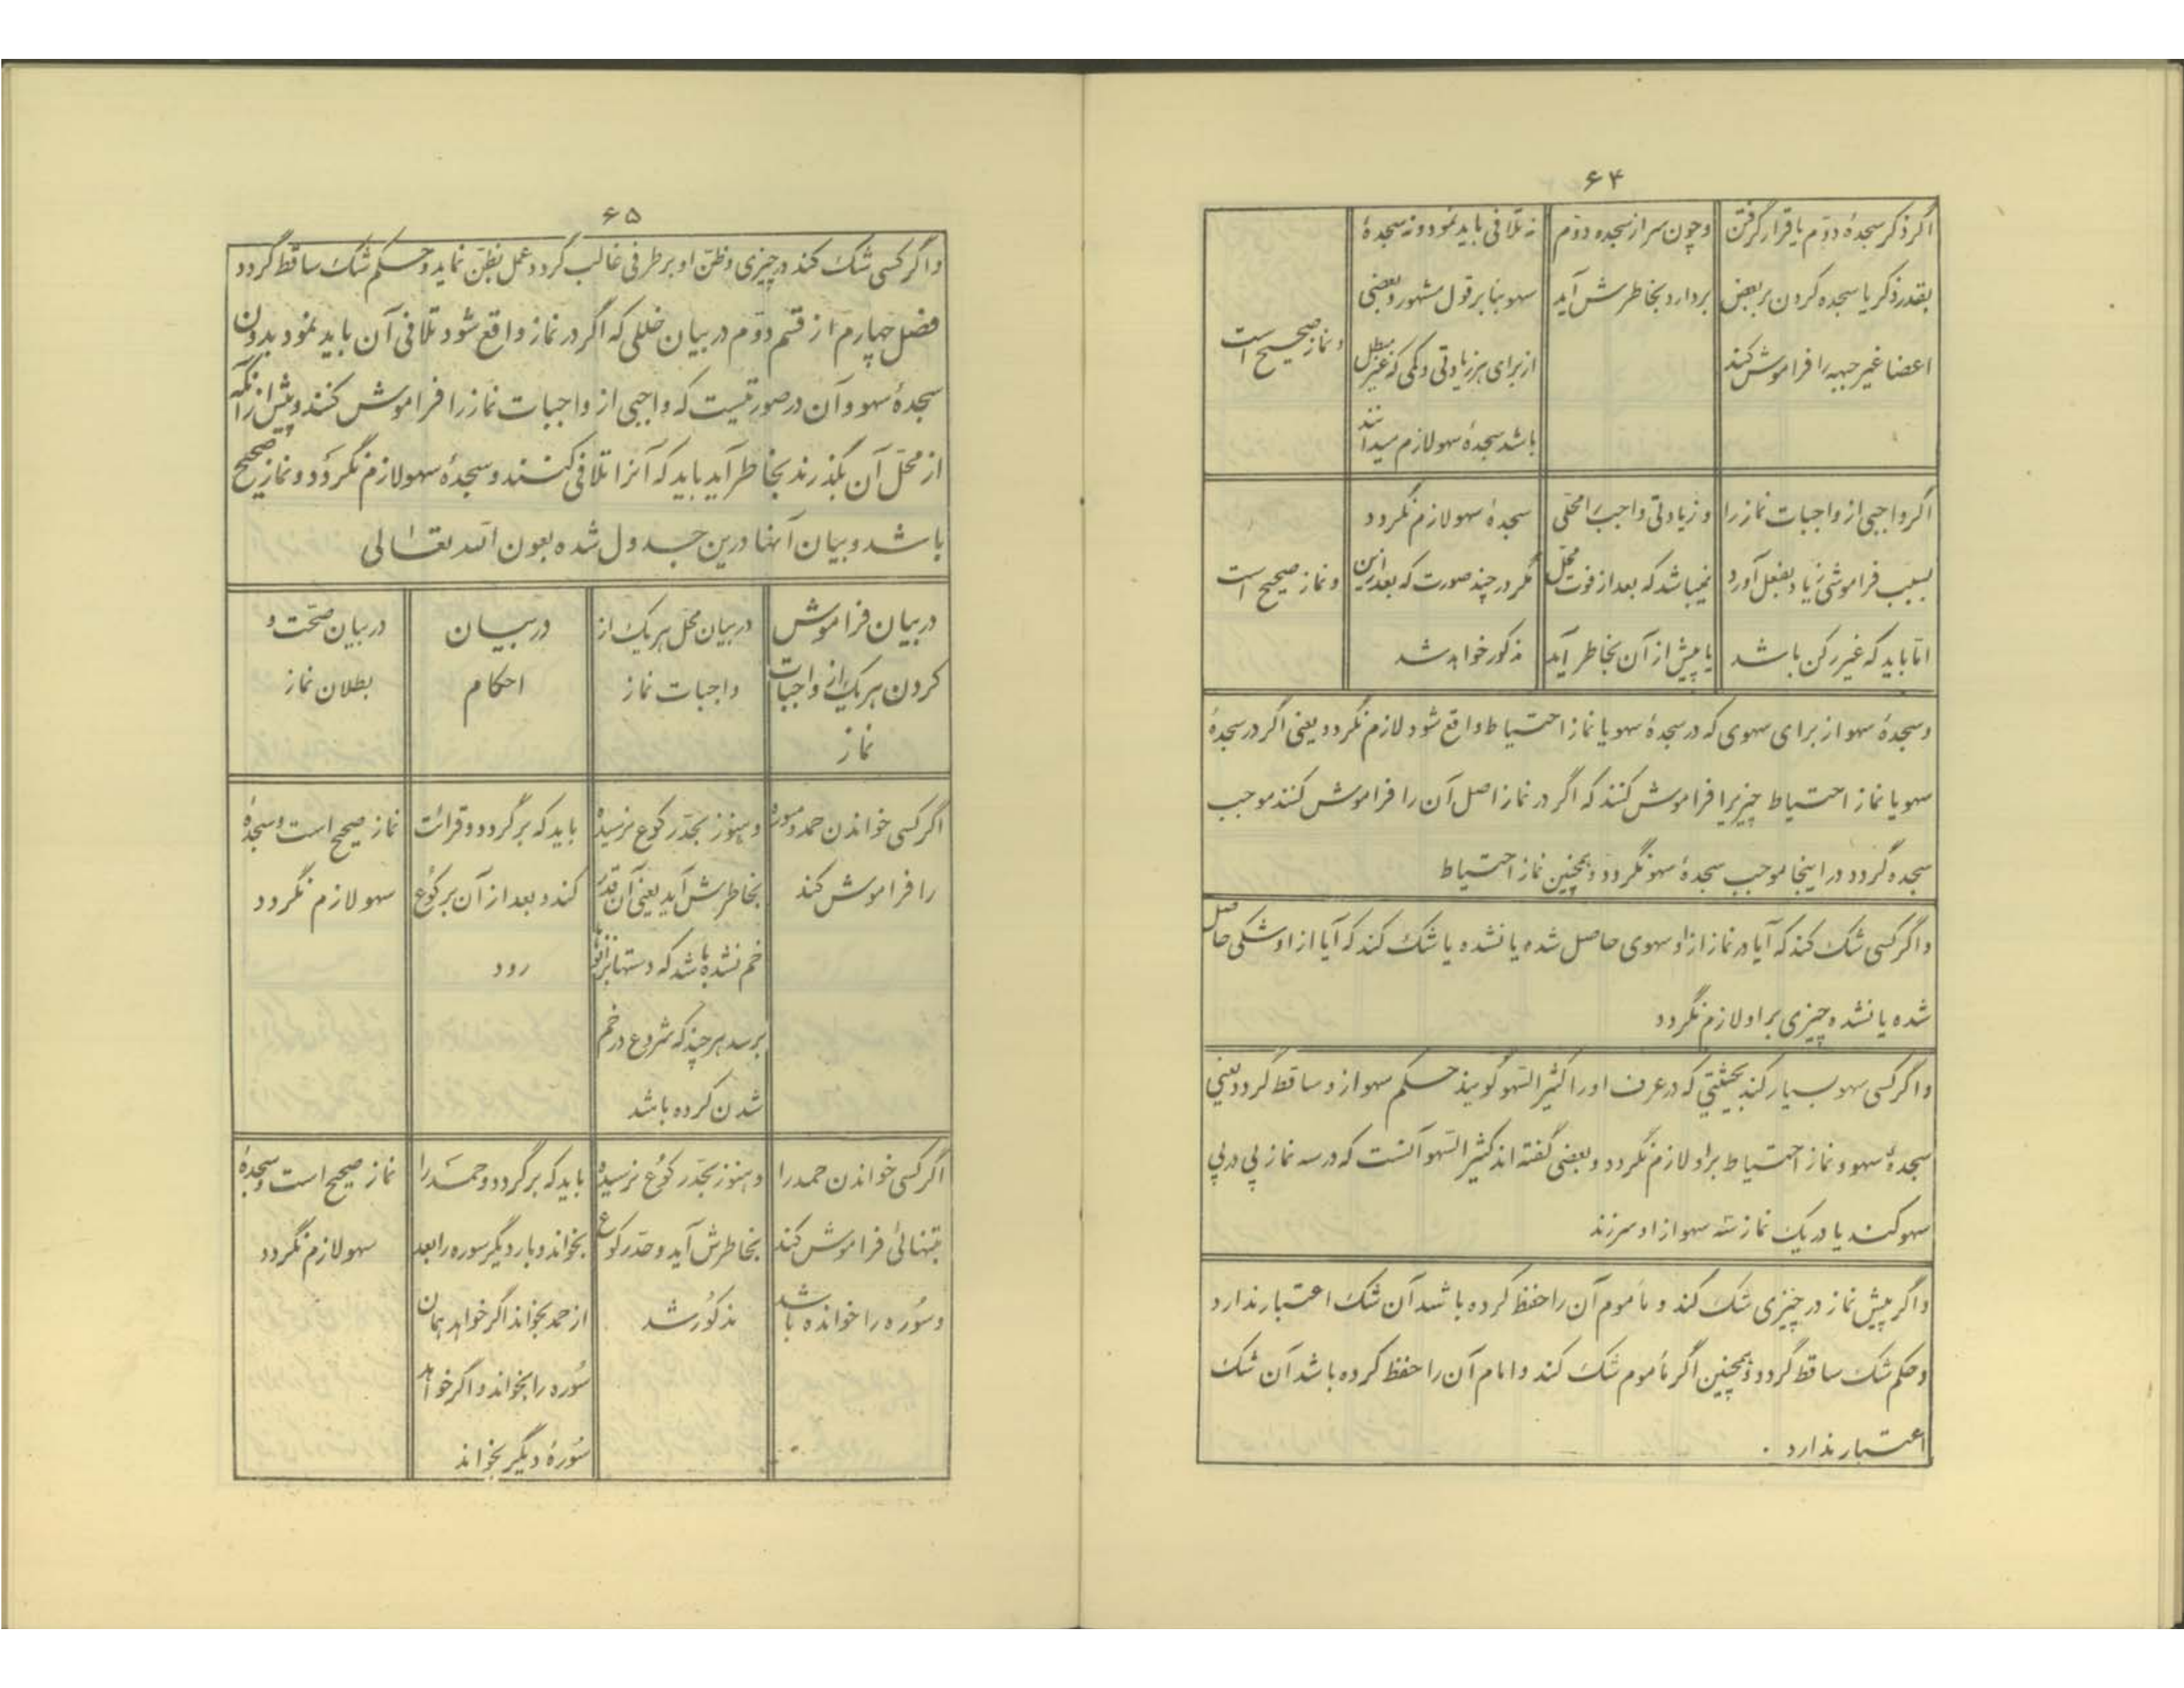 ۶۴
اگر ذکر سجدهٔ دوّم یا قرار گرفتن
بقدر ذکر یا سجده کردن بر بعض
اعضا غیر جبهه را فراموش کند
و چون سر از سجده دوّم
بردارد بخاطرش آید
نه تلافی باید نمود و نه سجدهٔ
سهو بنا بر قول مشهور و بعضی
از برای هر زیادتی و کمی که غیر مبطل
باشد سجدهٔ سهو لازم میدانند
و نماز صحیح است
اگر واجبی از واجبات نماز را
بسبب فراموشی زیاد بفعل آورد
امّا باید که غیر رکن باشد
و زیادتی واجب را محلّی
نمیباشد که بعد از فوت محلّ
یا پیش از آن بخاطر آید
سجدهٔ سهو لازم نگردد
مگر در چند صورت که بعد ازین
مذکور خواهد شد
و نماز صحیح است
و سجدهٔ سهو از برای سهوی که در سجدهٔ سهو یا نماز احتیاط واقع شود لازم نگردد یعنی اگر در سجدهٔ
سهو یا نماز احتیاط چیزیرا فراموش کنند که اگر در نماز اصل آن را فراموش کنند موجب
سجده گردد در اینجا موجب سجدهٔ سهو نگردد و همچنین نماز احتیاط
و اگر کسی شک کند که آیا در نماز از او سهوی حاصل شده یا نشده یا شک کند که آیا از او شکی حاصل
شده یا نشده چیزی بر او لازم نگردد
و اگر کسی سهو بسیار کند بحیثیتی که در عرف او را کثیر السّهو گویند حکم سهو از و ساقط گردد یعنی
سجدهٔ سهو و نماز احتیاط بر او لازم نگردد و بعضی گفته اند کثیر السّهو آنست که در سه نماز پی در پی
سهو کند یا در یک نماز سه سهو از او سر زند
و اگر پیش نماز در چیزی شک کند و مأموم آن را حفظ کرده باشد آن شک اعتبار ندارد
و حکم شک ساقط گردد و همچنین اگر مأموم شک کند و امام آن را حفظ کرده باشد آن شک
اعتبار ندارد .
۶۵
و اگر کسی شک کند در چیزی و ظنّ او بر طرفی غالب گردد عمل بظنّ نماید و حکم شک ساقط گردد
فصل چهارم از قسم دوّم در بیان خللی که اگر در نماز واقع شود تلافی آن باید نمود بدون
سجدهٔ سهو و آن در صورتیست که واجبی از واجبات نماز را فراموش کنند و پیش از آنکه
از محلّ آن بگذرند بخاطر آید باید که آنرا تلافی کنند و سجدهٔ سهو لازم نگردد و نماز صحیح
باشد و بیان آنها درین جدول شده بعون اللّه تعالی
در بیان فراموش
کردن هر یک از واجبات
نماز
در بیان محل هر یک از
واجبات نماز
در بیان
احکام
در بیان صحّت و
بطلان نماز
اگر کسی خواندن حمد و سوره
را فراموش کند
و هنوز بحدّ رکوع نرسیده
بخاطرش آید یعنی آن قدر
خم نشده باشد که دستها بزانو
برسد هر چند که شروع در خم
شدن کرده باشد
باید که برگردد و قرائت
کند و بعد از آن برکوع
رود
نماز صحیح است و سجدهٔ
سهو لازم نگردد
اگر کسی خواندن حمد را
بتنهائی فراموش کند
و سُوره را خوانده باشد
و هنوز بحدّ رکوع نرسیده
بخاطرش آید و حدّ رکوع
مذکور شد
باید که برگردد و حمد را
بخواند و بار دیگر سوره را بعد
از حمد بخواند اگر خواهد همان
سُوره را بخواند و اگر خواهد
سُورهٔ دیگر بخواند
نماز صحیح است و سجدهٔ
سهو لازم نگردد